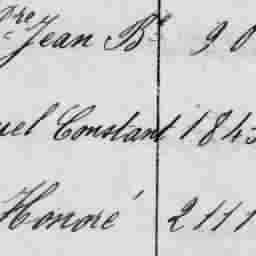 Pre Jean Bte 90
uel Constant 1843
Honoré 2111